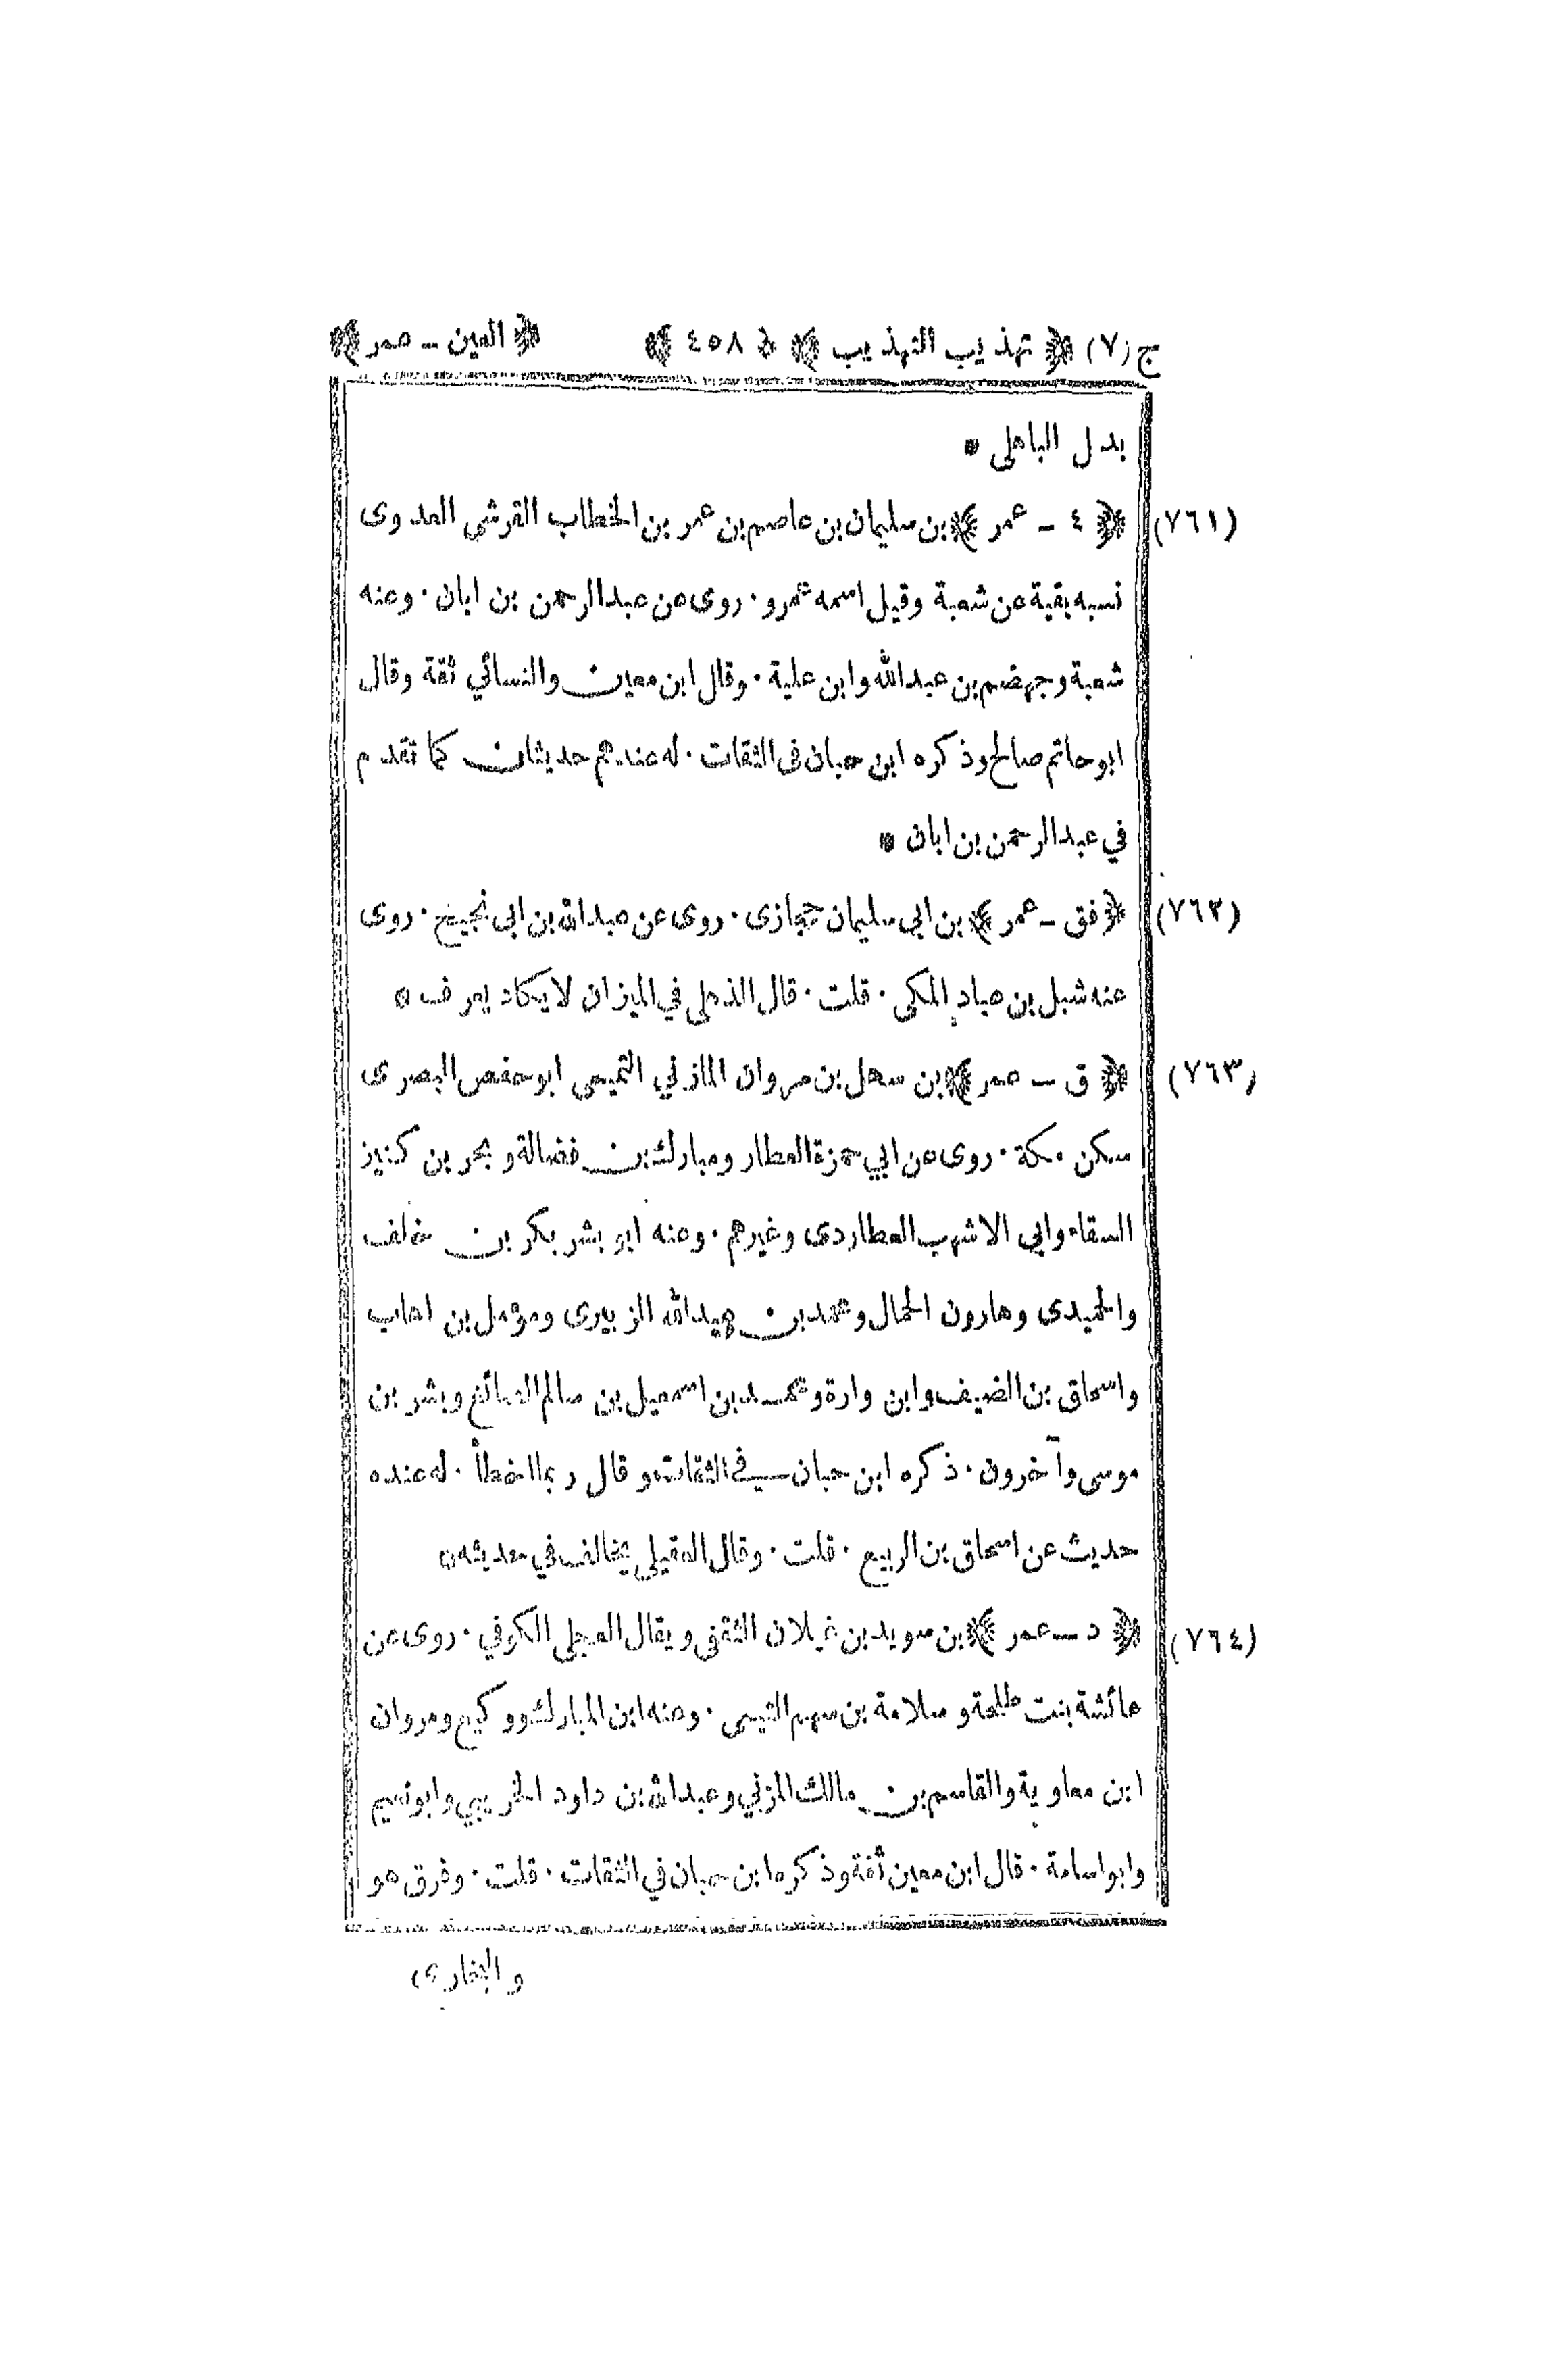 ج (٧) ﴿ تهذيب التهذيب ﴾ ﴿ ٤٥٨ ﴾ ﴿ العين ـ عمر ﴾
بدل الباهلى *
(٧٦١) ﴿ ٤ ـ عمر ﴾ بن سليمان بن عاصم بن عمر بن الخطاب القرشي العدوى
نسبه بقية عن شعبة وقيل اسمه عمرو · روى عن عبدالرحمن بن ابان · وعنه
شعبة وجهضم بن عبدالله وابن علية · وقال ابن معين والنسائي ثقة وقال
ابوحاتم صالح وذكره ابن حبان فى الثقات · له عندهم حديثان كما تقدم
في عبدالرحمن بن ابان *
(٧٦٢) ﴿ فق ـ عمر ﴾ بن ابى سليمان حجازى · روى عن عبدالله بن ابى نجيح · روى
عنه شبل بن عباد المكى · قلت · قال الذهبى في الميزان لا يكاد يعرف *
(٧٦٣) ﴿ ق ـ عمر ﴾ بن سهل بن مروان المازني التميمى ابوحفص البصرى
سكن مكة · روى عن ابي حمزة العطار ومبارك بن فضالة و بحر بن كنيز
السقاء وابى الاشهب العطاردى وغيرهم · وعنه ابو بشر بكر بن خلف
والحميدى وهارون الحمال ومحمد بن عبيدالله الزبيرى ومؤمل بن اهاب
واسحاق بن الضيف وابن وارة ومحمد بن اسمعيل بن سالم الصائغ وبشر بن
موسى وآخرون · ذكره ابن حبان في الثقات وقال ربما اخطأ · له عنده
حديث عن اسحاق بن الربيع · قلت · وقال العقيلى يخالف في حديثه *
(٧٦٤) ﴿ د ـ عمر ﴾ بن سويد بن غيلان الثقفى ويقال العجلى الكوفي · روى عن
عائشة بنت طلحة و سلامة بن سهم التيمى · وعنه ابن المبارك ووكيع ومروان
ابن معاوية والقاسم بن مالك المزني وعبدالله بن داود الخريبي وابونعيم
وابواسامة · قال ابن معين ثقة وذكره ابن حبان في الثقات · قلت · وفرق هو
والبخارى